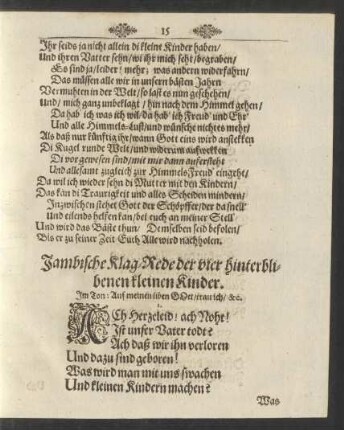 15
Ihr seids ja nicht allein di kleine Kinder haben/
Und ihren Vatter sehn/ wi ihr mich seht/ begraben/
Es sind ja/ leider! mehr; was andern widerfahrn/
Das müssen alle wir in unsern bästen Jahrn
Vermuhten in der Welt/ so last es nun geschehen/
Und/ mich ganz unbeklagt/ hin nach dem Himmel gehen/
Da hab ich was ich wil/ da hab' ich Freud' und Ehr'
Und alle Himmels-Lust/ und wünsche nichtes mehr/
Als daß nur künftig ihr/ wann Gott eins wird anstekken
Di Kugel runde Welt/ und widerum aufwekken
Di vor gewesen sind/ mit mir dann aufersteht
Und allesamt zugleich zur Himmels Freud' eingeht/
Da wil ich wieder sehn di Mutter mit den Kindern/
Das kan di Traurigkeit und alles Scheiden mindern/
Inzwischen stehet Gott der Schöpffer/ der da snell
Und eilends helfen kan/ bei euch an meiner Stell'
Und wird das Bäste thun/ Demselben seid befolen/
Bis er zu seiner Zeit Euch Alle wird nachholen.
Jambische Klag-Rede der vier hinterbli-
benen kleinen Kinder.
Im Ton: Auf meinen liben GOtt/ trau ich/ &c.
ACh Herzeleid! ach Noht!
Ist unser Vater todt?
Ach daß wir ihn verloren
Und dazu sind geboren!
Was wird man mit uns swachen
Und kleinen Kindern machen?
Was